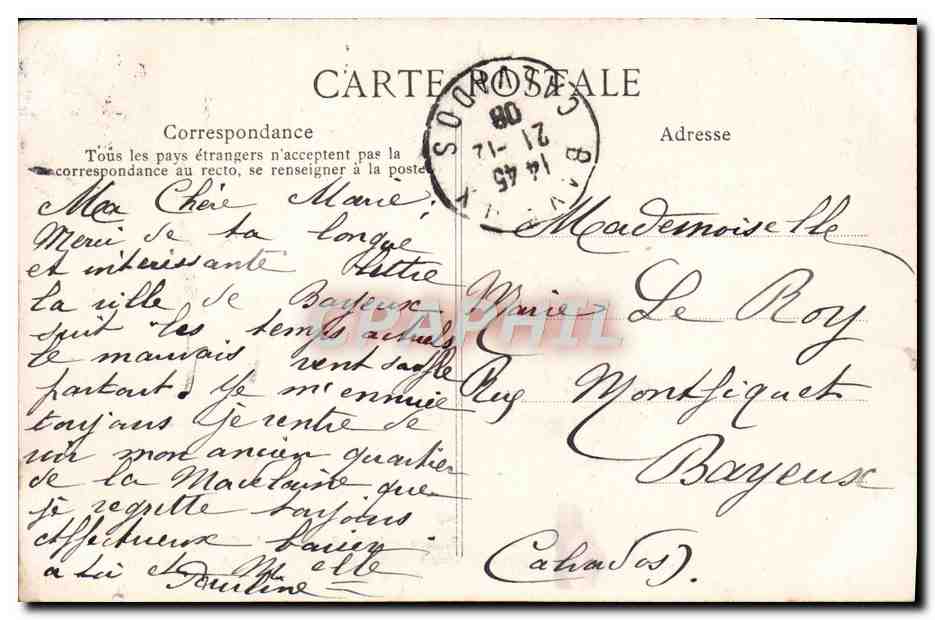 CARTE POSTALE
Correspondance
Tous les pays étrangers n'acceptent pas la
correspondance au recto, se renseigner à la poste
Adresse
CALVADOS
14 45
21 -12
08
Ma Chère Marie,
Merci de ta longue
et intéressante lettre
la ville de Bayeux
suit les temps actuels
le mauvais vent souffle
partout. Je m'ennuie
toujours je rentre de
voir mon ancien quartier
de la Madelaine que
je regrette toujours
affectueux baiser
a toi et
Pauline
Mademoiselle
Marie Le Roy
Rue Montfiquet
Bayeux
Calvados).
CPAPHIL